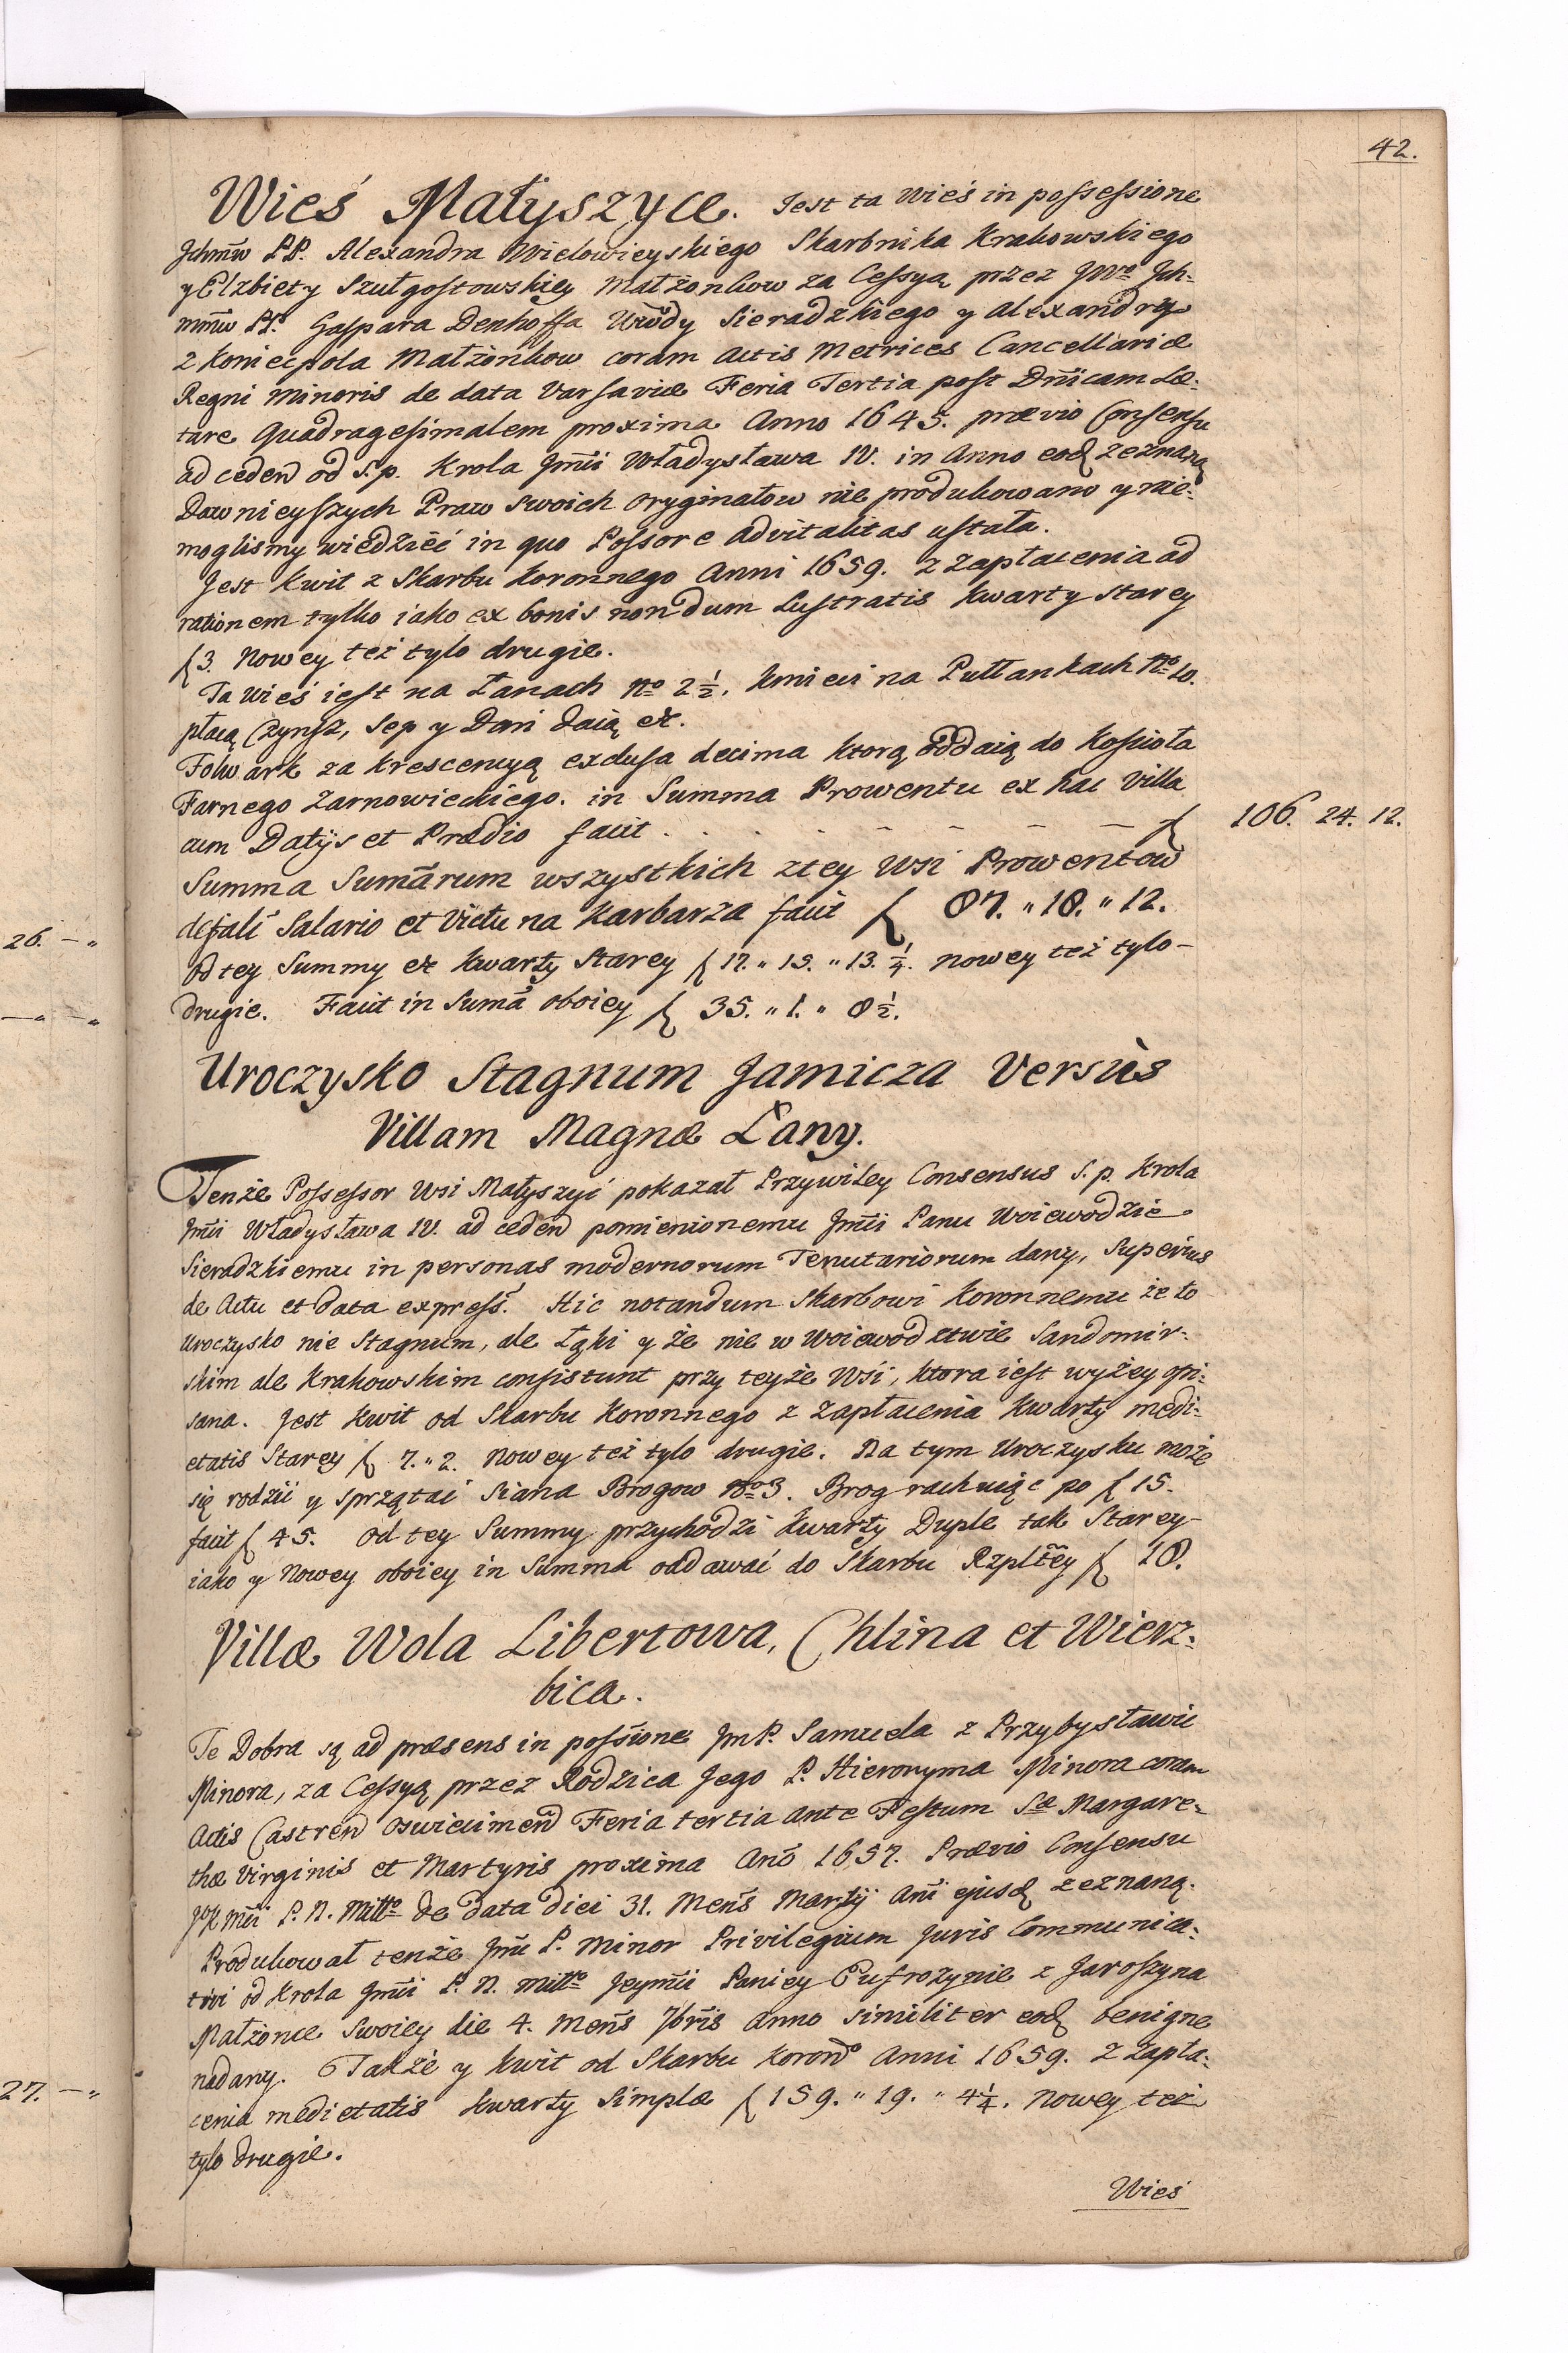 42.
Wieś Małyszyce. Jest ta Wieś in possessione
Jchm̃w PP. Alexandra Wielowieyskiego Skarbnika Krakowskiego
y Elzbiety Szułgostowskiey Małżonkow za Cessyą przez JWo Jch-
mm̃w PP. Gaspara Denhoffa Wwody Sieradzkiego y Alexandry
z Koniecpola Małżonkow coram Actis Metrices Cancellariæ
Regni Minoris de data Varsaviæ Feria Tertia post Dnicam Læ-
tare Quadragesimalem proxima Anno 1645. prævio Consensu
ad ceden̄d od S. p. Krola Jm̃ći Władysława IV. in Anno eod zeznaną
Dawnieyszych Praw swoich oryginałow nie produkowano y nie-
moglismy wiedzieć in quo Possore advitalitas ustała.
Jest Kwit z Skarbu Koronnego Anni 1659. z Zapłacenia ad
rationem tylko iako ex bonis nondum Lustratis Kwarty starey
f 3. Nowey też tylo drugie.
Ta Wieś iest na Łanach No 2½. Kmieci na Pułłankach No 10.
płacą Czynsz, Sep y Dani daią &c.
Folwark za Krescencyą exclusa decima ktorą oddaią do Kościoła
Farnego Zarnowieckiego. in Summa Prowentu ex hac Villa
cum Datijs et Prædio facit . . . . – – – – f 106. 24. 12.
Summa Sumārum wszystkich z tey Wsi Prowentow
defalć Salario et Victu na Karbarza facit f 87. " 18. " 12.
od tey Summy &c Kwarty Starey f 17. " 15. " 13.¼. nowey też tylo-
drugie. Facit in Sumā oboiey f 35. " 1. " 8½.
Uroczysko Stagnum Jamicza Versùs
Villam Magnæ Łany.
Tenże Possessor Wsi Małyszyć pokazał Przywiley Consensus S. p. Krola
Jm̃ći Władysława IV. ad ceden̄d pomienionemu Jm̃ći Panu Woiewodzie
Sieradzkiemu in personas modernorum Tenutariorum dany, superius
de Actu et data express. Hic notandum Skarbowi Koronnemu że to
Uroczysko nie Stagnum, ale Łąki y że nie w Woiewodztwie Sandomir-
skim ale Krakowskim consistunt przy teyże Wsi, ktora iest wyżey opi-
sana. Jest Kwit od Skarbu Koronnego z Zapłacenia Kwarty medi-
etatis Starey f 7. " 2. Nowey też tylo drugie. Na tym Uroczysku może
się rodzić y sprzątać Siana Brogow No 3. Brog rachuiąc po f 15.
facit f 45. od tey Summy przychodzi Kwarty Duplæ tak Starey
iako y Nowey oboiey in Summa oddawać do Skarbu Rzpltey f 18.
Villæ Wola Libertowa, Chlina et Wierz-
bica.
Te Dobra są ad præsens in possione JmP. Samuela z Przybysławic
Minora, za Cessyą przez Rodzica Jego P. Hieronyma Minora coram
Actis Castren̄ Oswiecimen̄ Feria tertia ante Festum Sæ Margare-
thæ Virginis et Martyris proxima Anō 1657. Prævio Consensu
JoKMći P. N. Miło de data diei 31. Mens̄ Martij Ani ejusd zeznaną.
Produkował tenże Jm̃ć P. Minor Privilegium Juris Communica-
tivi od Krola Jm̃ći P. N. Miło Jeym̃ći Paniey Eufrozynie z Jaroszyna
Małżonce Swoiey die 4. Mens̄ 7bris Anno similiter eod benigne
nadany. Także y Kwit od Skarbu Korono Anni 1659. z Zapła-
cenia medietatis Kwarty Simplæ f 159. " 19. " 4¼. Nowey też
tylo drugie.
Wieś
26. – "
– " – "
27. – "